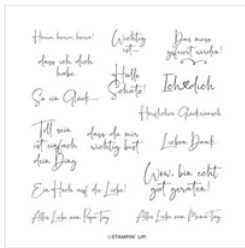 Wichtig
ist...
Das muss
gefeiert werden!
dass ich dich
habe
Hallo
Schatz!
Ich dich
So ein Glück...
Herzlichen Glückwunsch
Toll sein
ist einfach
dein Ding
dass du mir
wichtig bist
Lieben Dank
Wow, bin echt
gut geraten!
Ein Hoch auf die Liebe!
Alles Liebe zum Papa-Tag
Alles Liebe zum Mama-Tag
©STAMPIN' UP!